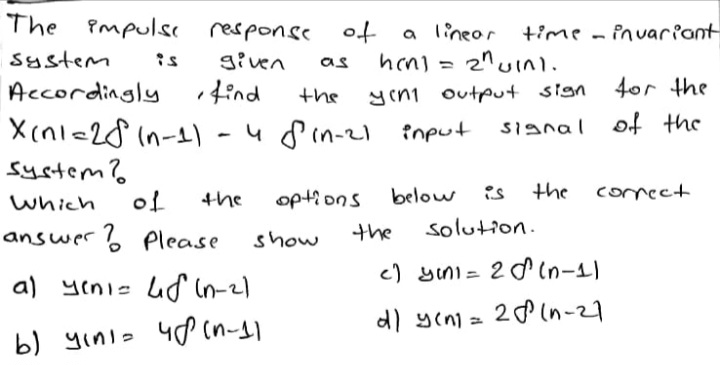 The impulse response of a linear time - invariant
system is given as h(n) = 2ⁿu(n).
Accordingly, find the y(n) output sign for the
X(n)=2δ(n-1) - 4 δ(n-2) input signal of the
system?
which of the options below is the correct
answer? Please show the solution.
a) y(n)= 4δ(n-2)
c) y(n)= 2δ(n-1)
b) y(n)= 4δ(n-1)
d) y(n)= 2δ(n-2)